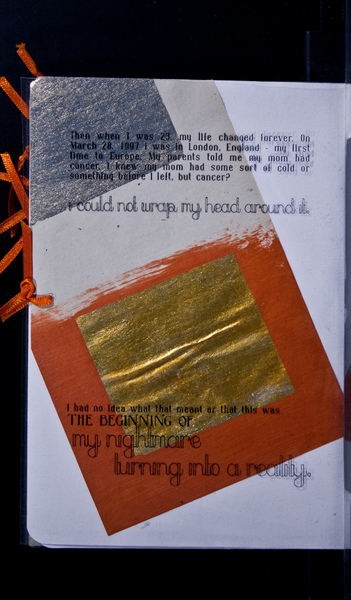 Then when I was 23, my life changed forever. On
March 28, 1997 I was in London, England - my first
time to Europe. My parents told me my mom had
cancer. I knew my mom had some sort of cold or
something before I left, but cancer?
I could not wrap my head around it.
I had no idea what that meant or that this was
THE BEGINNING OF
my nightmare
turning into a reality.